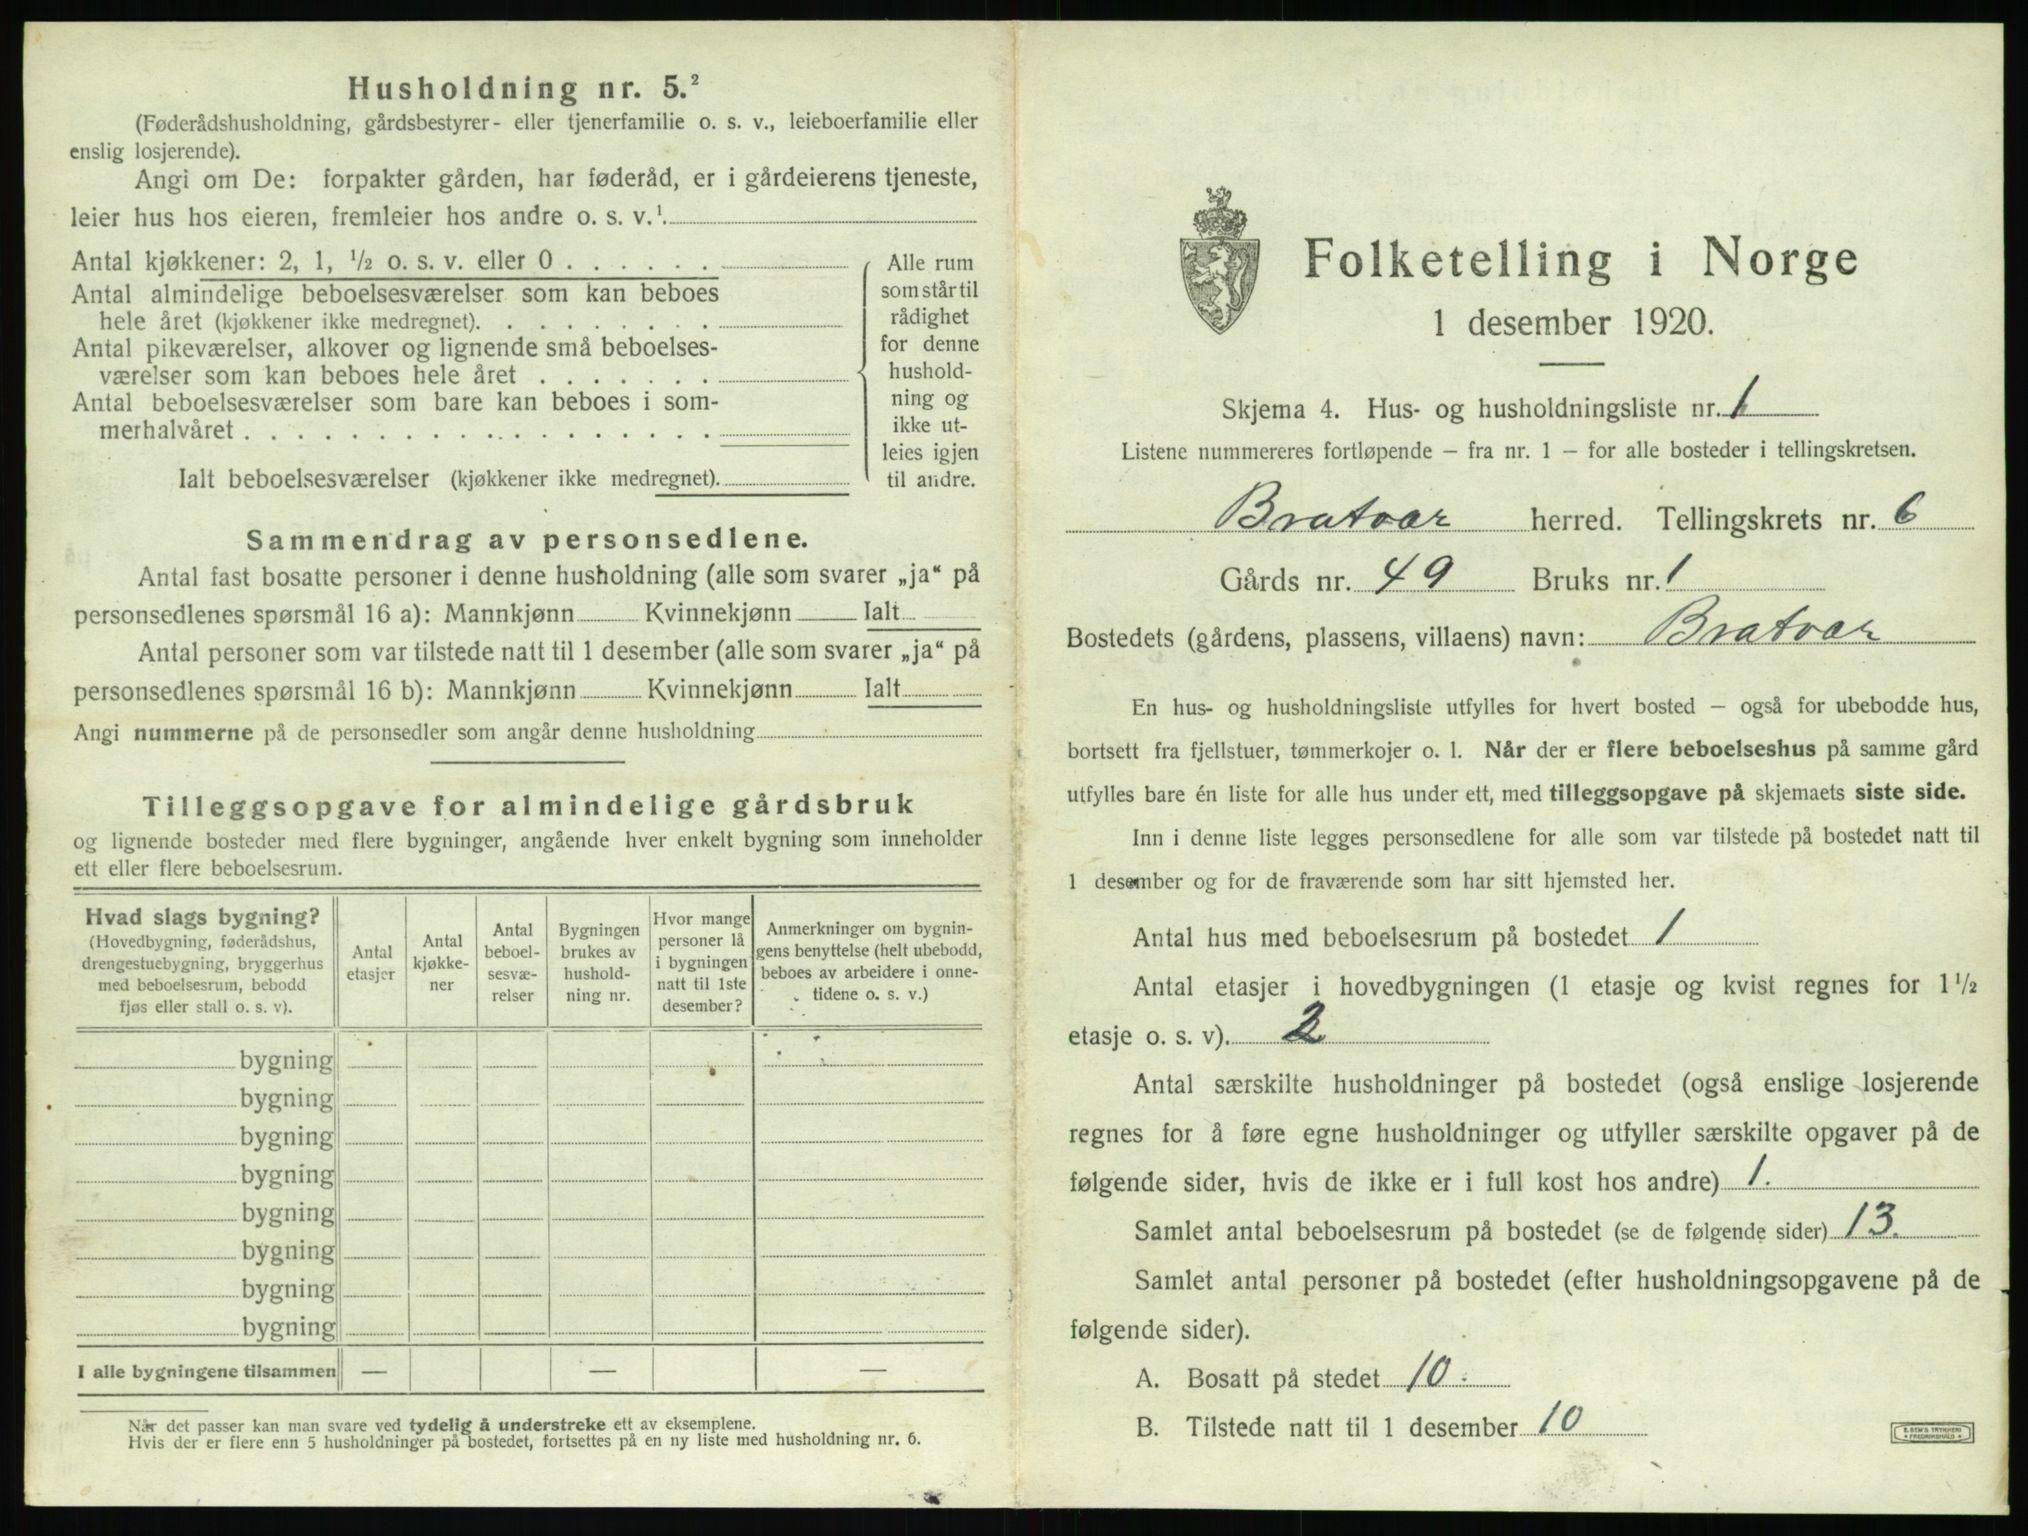 Husholdning nr. 5.²
(Føderådshusholdning, gårdsbestyrer- eller tjenerfamilie o. s. v., leieboerfamilie eller
enslig losjerende).
Angi om De: forpakter gården, har føderåd, er i gårdeierens tjeneste,
leier hus hos eieren, fremleier hos andre o. s. v.¹
Antal kjøkkener: 2, 1, ½ o. s. v. eller 0 . . . . . .
Antal almindelige beboelsesværelser som kan beboes
hele året (kjøkkener ikke medregnet). . . . . . . . .
Antal pikeværelser, alkover og lignende små beboelses-
værelser som kan beboes hele året . . . . . . .
Antal beboelsesværelser som bare kan beboes i som-
merhalvåret . . . . . . . . . . . . . . . . . .
Ialt beboelsesværelser (kjøkkener ikke medregnet).
Alle rum
som står til
rådighet
for denne
hushold-
ning og
ikke ut-
leies igjen
til andre.
Sammendrag av personsedlene.
Antal fast bosatte personer i denne husholdning (alle som svarer „ja“ på
personsedlenes spørsmål 16 a): Mannkjønn Kvinnekjønn Ialt
Antal personer som var tilstede natt til 1 desember (alle som svarer „ja“ på
personsedlenes spørsmål 16 b): Mannkjønn Kvinnekjønn Ialt
Angi nummerne på de personsedler som angår denne husholdning
Tilleggsopgave for almindelige gårdsbruk
og lignende bosteder med flere bygninger, angående hver enkelt bygning som inneholder
ett eller flere beboelsesrum.
Hvad slags bygning?
(Hovedbygning, føderådshus,
drengestuebygning, bryggerhus
med beboelsesrum, bebodd
fjøs eller stall o. s. v).
Antal
etasjer
Antal
kjøkke-
ner
Antal
beboel-
sesvæ-
relser
Bygningen
brukes av
hushold-
ning nr.
Hvor mange
personer lå
i bygningen
natt til 1ste
desember?
Anmerkninger om bygnin-
gens benyttelse (helt ubebodd,
beboes av arbeidere i onne-
tidene o. s. v.)
bygning
bygning
bygning
bygning
bygning
bygning
bygning
bygning
I alle bygningene tilsammen — — —
Når det passer kan man svare ved tydelig å understreke ett av eksemplene.
Hvis der er flere enn 5 husholdninger på bostedet, fortsettes på en ny liste med husholdning nr. 6.
Folketelling i Norge
1 desember 1920.
Skjema 4. Hus- og husholdningsliste nr. 1
Listene nummereres fortløpende – fra nr. 1 – for alle bosteder i tellingskretsen.
Bratvær herred. Tellingskrets nr. 6
Gårds nr. 49 Bruks nr. 1
Bostedets (gårdens, plassens, villaens) navn: Bratvær
En hus- og husholdningsliste utfylles for hvert bosted – også for ubebodde hus,
bortsett fra fjellstuer, tømmerkojer o. l. Når der er flere beboelseshus på samme gård
utfylles bare én liste for alle hus under ett, med tilleggsopgave på skjemaets siste side.
Inn i denne liste legges personsedlene for alle som var tilstede på bostedet natt til
1 desember og for de fraværende som har sitt hjemsted her.
Antal hus med beboelsesrum på bostedet 1
Antal etasjer i hovedbygningen (1 etasje og kvist regnes for 1½
etasje o. s. v). 2
Antal særskilte husholdninger på bostedet (også enslige losjerende
regnes for å føre egne husholdninger og utfyller særskilte opgaver på de
følgende sider, hvis de ikke er i full kost hos andre) 1.
Samlet antal beboelsesrum på bostedet (se de følgende sider) 13.
Samlet antal personer på bostedet (efter husholdningsopgavene på de
følgende sider).
A. Bosatt på stedet 10
B. Tilstede natt til 1 desember 10
E. SEM'S TRYKKERI
FREDRIKSHALD